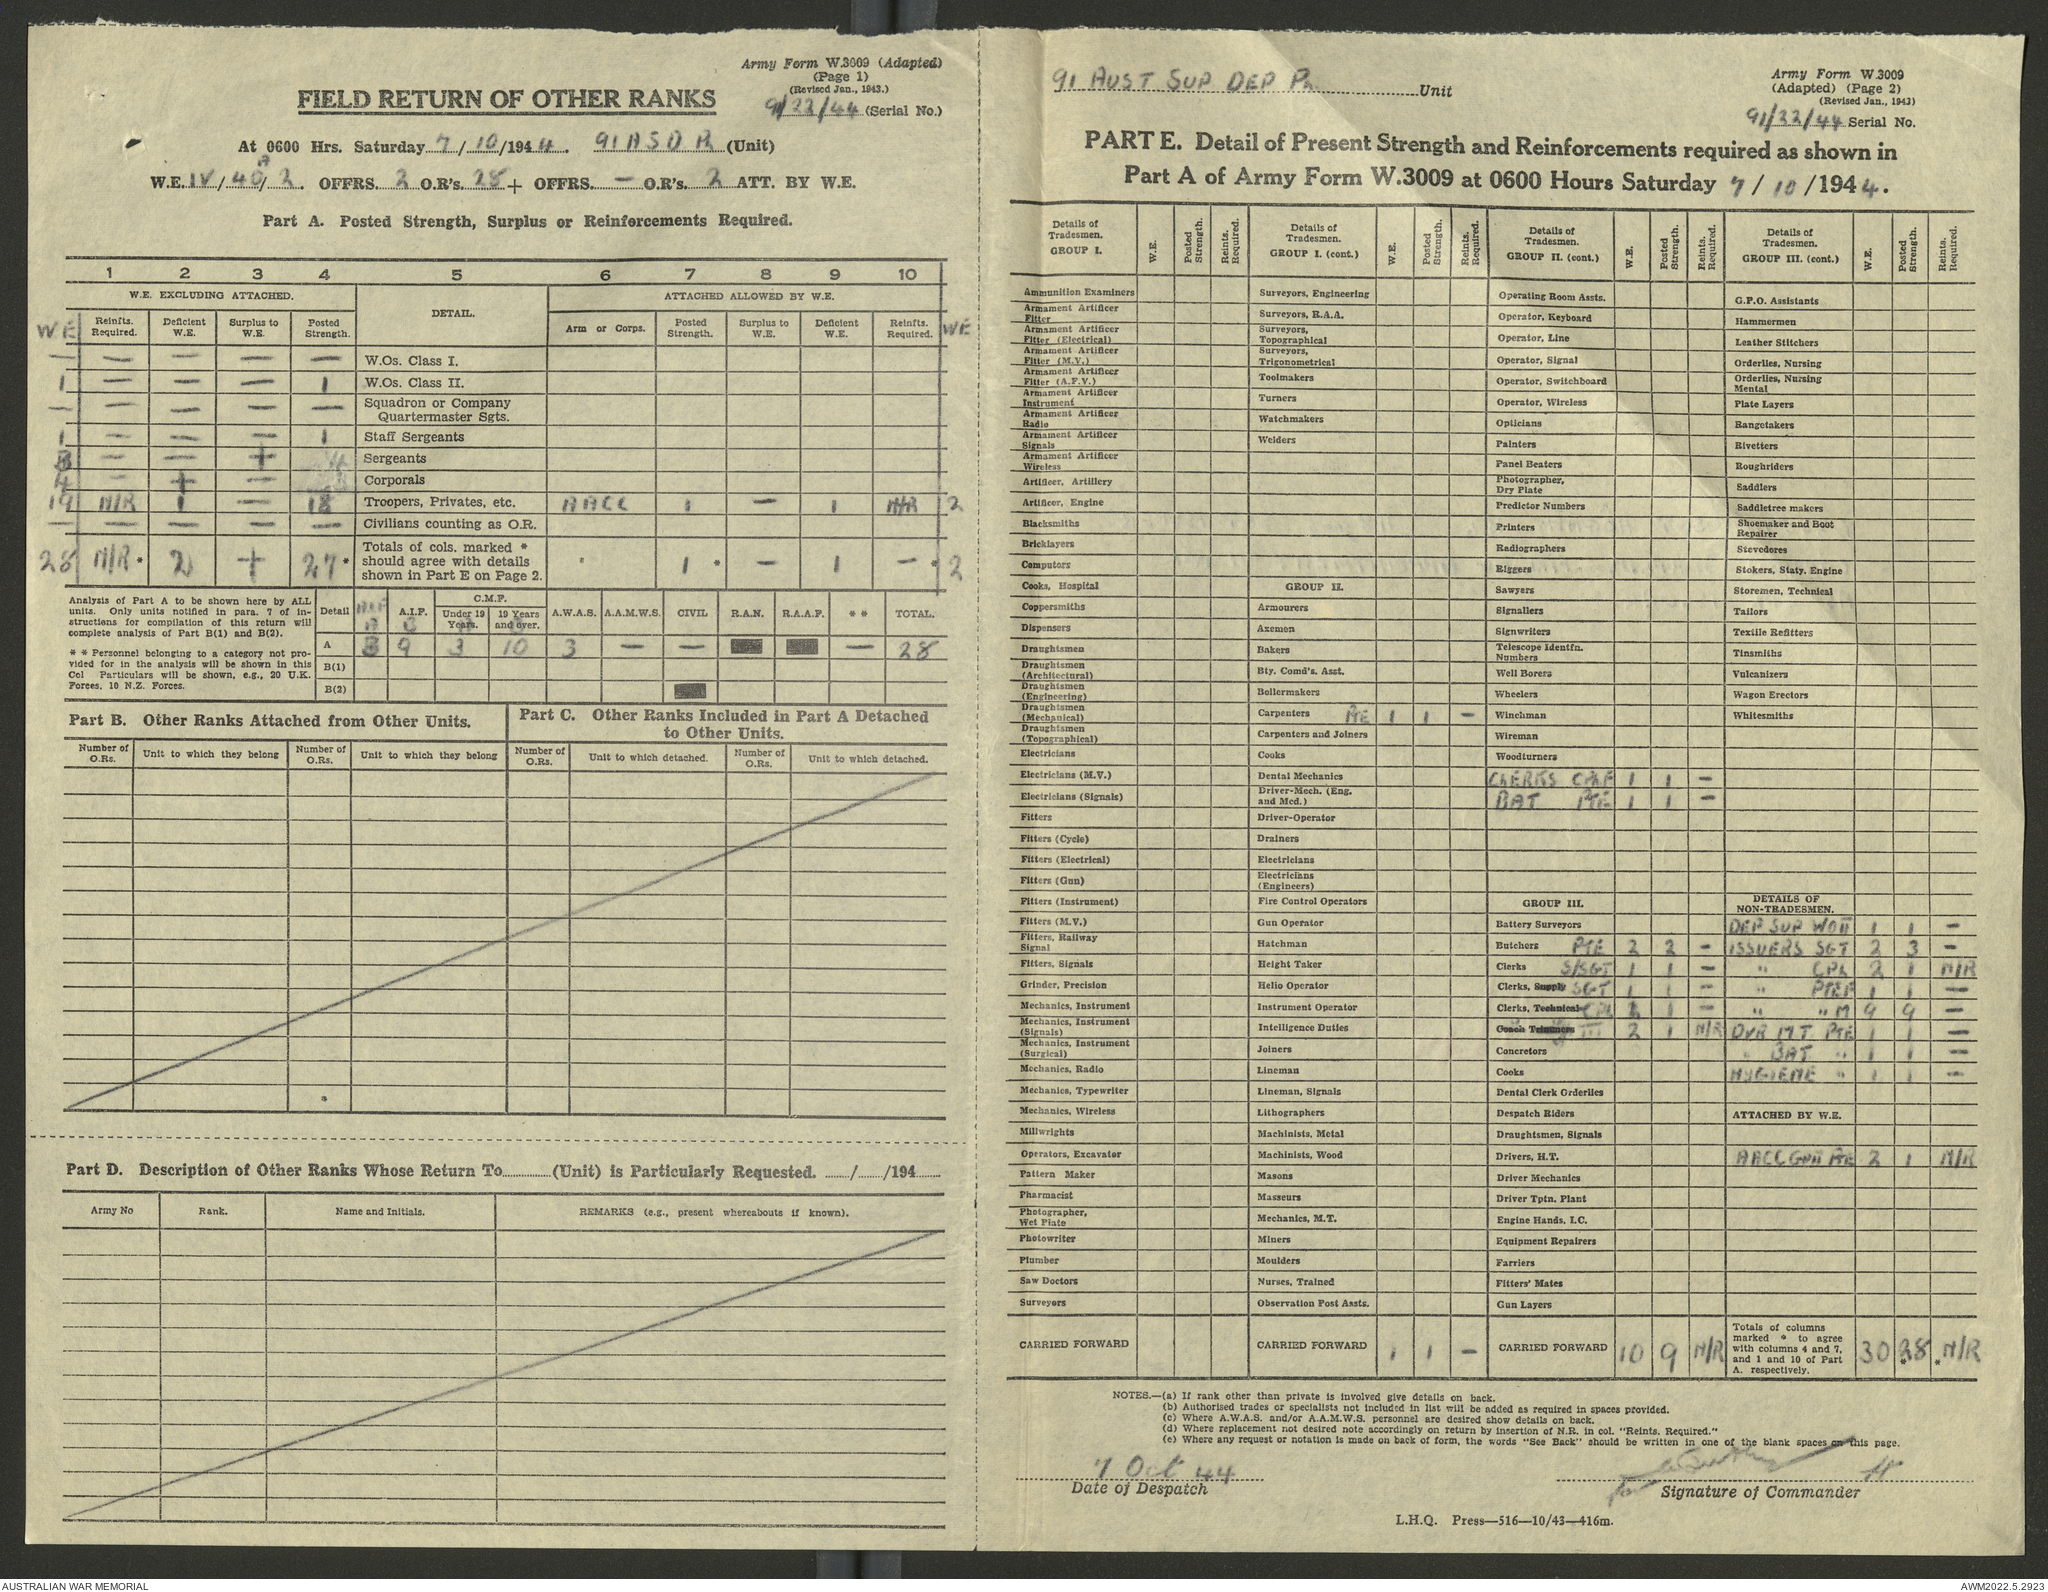 Army Form W.3009 (Adapted)
(Page 1)
(Revised Jan., 1943.)
FIELD RETURN OF OTHER RANKS
91/22/44 (Serial No.)
At 0600 Hrs. Saturday 7/10/1944. 91 A S D Pl (Unit)
A
W.E. IV/40/2. OFFRS. 2 O.R's. 28 + OFFRS. — O.R's. 2 ATT. BY W.E.
Part A. Posted Strength, Surplus or Reinforcements Required.
1 2 3 4 5 6 7 8 9 10
W.E. EXCLUDING ATTACHED. DETAIL. ATTACHED ALLOWED BY W.E.
WE Reinfts. Required. Deficient W.E. Surplus to W.E. Posted Strength. Arm or Corps. Posted Strength. Surplus to W.E. Deficient W.E. Reinfts. Required. WE
— — — — — W.Os. Class I.
1 — — — 1 W.Os. Class II.
— — — — — Squadron or Company Quartermaster Sgts.
1 — — — 1 Staff Sergeants
3 — — + 4 Sergeants
4 — + — Corporals
19 N/R 1 — 18 Troopers, Privates, etc. AACC 1 — 1 N/R 2
— — — — — Civilians counting as O.R.
28 N/R * 2 + 27 * Totals of cols. marked * should agree with details shown in Part E on Page 2. 1 * — 1 — * 2
Analysis of Part A to be shown here by ALL units. Only units notified in para. 7 of instructions for compilation of this return will complete analysis of Part B(1) and B(2).
* * Personnel belonging to a category not provided for in the analysis will be shown in this Col Particulars will be shown, e.g., 20 U.K. Forces. 10 N.Z. Forces.
Detail A.I.F. C.M.F. Under 19 Years. 19 Years and over. A.W.A.S. A.A.M.W.S. CIVIL R.A.N. R.A.A.F. * * TOTAL.
A 3 9 3 10 3 — — — 28
B(1)
B(2)
Part B. Other Ranks Attached from Other Units.
Part C. Other Ranks Included in Part A Detached to Other Units.
Number of O.Rs. Unit to which they belong Number of O.Rs. Unit to which they belong Number of O.Rs. Unit to which detached. Number of O.Rs. Unit to which detached.
Part D. Description of Other Ranks Whose Return To (Unit) is Particularly Requested. / /194
Army No Rank. Name and Initials. REMARKS (e.g., present whereabouts if known).
91 AUST SUP DEP PL Unit
Army Form W.3009
(Adapted) (Page 2)
(Revised Jan., 1943)
91/22/44 Serial No.
PART E. Detail of Present Strength and Reinforcements required as shown in
Part A of Army Form W.3009 at 0600 Hours Saturday 7/10/1944.
Details of Tradesmen. GROUP I. W.E. Posted Strength. Reints. Required.
Ammunition Examiners
Armament Artificer Fitter
Armament Artificer Fitter (Electrical)
Armament Artificer Fitter (M.V.)
Armament Artificer Fitter (A.F.V.)
Armament Artificer Instrument
Armament Artificer Radio
Armament Artificer Signals
Armament Artificer Wireless
Artificer, Artillery
Artificer, Engine
Blacksmiths
Bricklayers
Computors
Cooks, Hospital
Coppersmiths
Dispensers
Draughtsmen
Draughtsmen (Architectural)
Draughtsmen (Engineering)
Draughtsmen (Mechanical)
Draughtsmen (Topographical)
Electricians
Electricians (M.V.)
Electricians (Signals)
Fitters
Fitters (Cycle)
Fitters (Electrical)
Fitters (Gun)
Fitters (Instrument)
Fitters (M.V.)
Fitters, Railway Signal
Fitters, Signals
Grinder, Precision
Mechanics, Instrument
Mechanics, Instrument (Signals)
Mechanics, Instrument (Surgical)
Mechanics, Radio
Mechanics, Typewriter
Mechanics, Wireless
Millwrights
Operators, Excavator
Pattern Maker
Pharmacist
Photographer, Wet Plate
Photowriter
Plumber
Saw Doctors
Surveyors
CARRIED FORWARD
Details of Tradesmen. GROUP I. (cont.) W.E. Posted Strength. Reints. Required.
Surveyors, Engineering
Surveyors, R.A.A.
Surveyors, Topographical
Surveyors, Trigonometrical
Toolmakers
Turners
Watchmakers
Welders
GROUP II.
Armourers
Axemen
Bakers
Bty. Comd's. Asst.
Boilermakers
Carpenters PTE 1 1 —
Carpenters and Joiners
Cooks
Dental Mechanics
Driver-Mech. (Eng. and Med.)
Driver-Operator
Drainers
Electricians
Electricians (Engineers)
Fire Control Operators
Gun Operator
Hatchman
Height Taker
Helio Operator
Instrument Operator
Intelligence Duties
Joiners
Lineman
Lineman, Signals
Lithographers
Machinists, Metal
Machinists, Wood
Masons
Masseurs
Mechanics, M.T.
Miners
Moulders
Nurses, Trained
Observation Post Assts.
CARRIED FORWARD 1 1 —
Details of Tradesmen. GROUP II. (cont.) W.E. Posted Strength. Reints. Required.
Operating Room Assts.
Operator, Keyboard
Operator, Line
Operator, Signal
Operator, Switchboard
Operator, Wireless
Opticians
Painters
Panel Beaters
Photographer, Dry Plate
Predictor Numbers
Printers
Radiographers
Riggers
Sawyers
Signallers
Signwriters
Telescope Identfn. Numbers
Well Borers
Wheelers
Winchman
Wireman
Woodturners
CLERKS CPLF 1 1 —
BAT PTE 1 1 —
GROUP III.
Battery Surveyors
Butchers PTE 2 2 —
Clerks S/SGT 1 1 —
Clerks, Supply SGT 1 1 —
Clerks, Technical CPL 2 1 —
Coach Trimmers III 2 1 N/R
Concretors
Cooks
Dental Clerk Orderlies
Despatch Riders
Draughtsmen, Signals
Drivers, H.T.
Driver Mechanics
Driver Tptn. Plant
Engine Hands, I.C.
Equipment Repairers
Farriers
Fitters' Mates
Gun Layers
CARRIED FORWARD 10 9 N/R
Details of Tradesmen. GROUP III. (cont.) W.E. Posted Strength. Reints. Required.
G.P.O. Assistants
Hammermen
Leather Stitchers
Orderlies, Nursing
Orderlies, Nursing Mental
Plate Layers
Rangetakers
Rivetters
Roughriders
Saddlers
Saddletree makers
Shoemaker and Boot Repairer
Stevedores
Stokers, Staty. Engine
Storemen, Technical
Tailors
Textile Refitters
Tinsmiths
Vulcanizers
Wagon Erectors
Whitesmiths
DETAILS OF NON-TRADESMEN.
DEP SUP WOII 1 1 —
ISSUERS SGT 2 3 —
" CPL 2 1 N/R
" PTEF 1 1 —
" " M 9 9 —
DVR M.T PTE 1 1 —
" BAT " 1 1 —
HYGIENE " 1 1 —
ATTACHED BY W.E.
AACC GNII PTE 2 1 N/R
Totals of columns marked * to agree with columns 4 and 7, and 1 and 10 of Part A. respectively. 30 28 * * N/R
NOTES.—(a) If rank other than private is involved give details on back.
(b) Authorised trades or specialists not included in list will be added as required in spaces provided.
(c) Where A.W.A.S. and/or A.A.M.W.S. personnel are desired show details on back.
(d) Where replacement not desired note accordingly on return by insertion of N.R. in col. "Reints. Required."
(e) Where any request or notation is made on back of form, the words "See Back" should be written in one of the blank spaces on this page.
7 Oct 44
Date of Despatch
for
Signature of Commander
L.H.Q. Press—516—10/43—416m.
AUSTRALIAN WAR MEMORIAL
AWM2022.5.2923